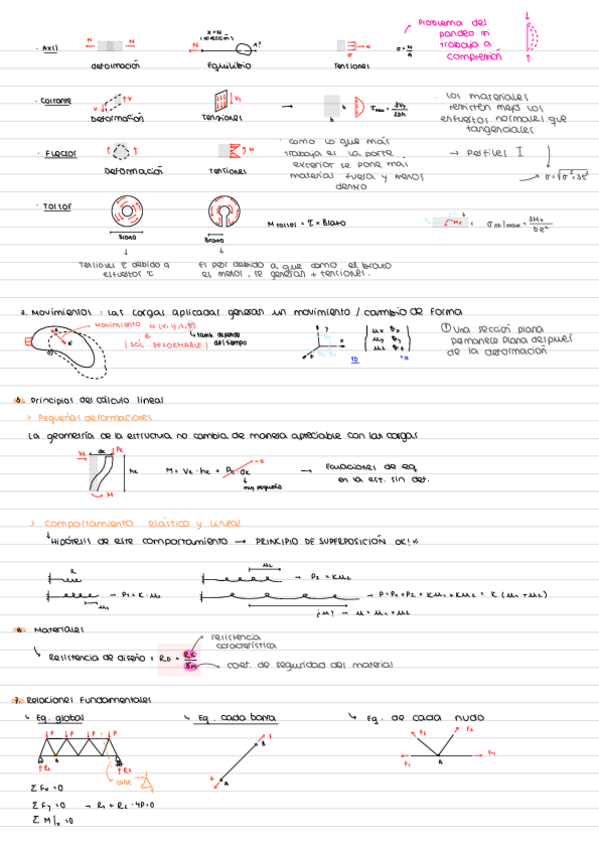 Problema del
pandeo si
trabaja a
compresión
· Axil
N
N
x = N
N
1?
N
σ = N/A
deformación
Equilibrio
Tensiones
· Cortante
V
V
Deformación
Tensiones
→
b
· Los materiales
resisten mejor los
esfuerzos normales que
tangenciales
· Flector
Deformación
M
Tensiones
· como lo que más
trabaja es la parte
exterior se pone más
material fuera y menos
dentro
→ Perfiles I
· Torsor
Brazo
Brazo
M torsor = τ × Brazo
Tensiones τ debido a
esfuerzo τ
Es peor debido a que como el brazo
es menor, se generan + tensiones.
Movimientos : las cargas aplicadas generan un movimiento / cambio de forma
movimiento u (x, y, z, t)
↳ tamb. depende
del tiempo
(SÓL. DEFORMABLE)
y
x
z
ux θx
uy θy
uz θz
① Una sección plana
permanece plana después
de la deformación
5. Principios del cálculo lineal
> Pequeñas deformaciones
La geometría de la estructura no cambia de manera apreciable con las cargas
M
M = Vk · hk +
→0
muy pequeño
→ Ecuaciones de eq
en la est. sin def.
> Comportamiento elástico y lineal
↳ Hipótesis de este comportamiento → PRINCIPIO DE SUPERPOSICIÓN OK!
K
→ P1 = K · u1
u1
u2
→ P2 = K u2
→ P = P1 + P2 = K u1 + K u2 = K (u1 + u2)
¿u? → u = u1 + u2
6. Materiales
↳ Resistencia de diseño :
resistencia
característica
coef. de seguridad del material
7. Relaciones fundamentales
↳ Eq. global
↳ Eq. cada barra
↳ Eq. de cada nudo
P
P
P
P
A
R1
R2
B
A
F1
F2
F3
F4
A
Σ Fx = 0
Σ Fy = 0 → R1 + R2 - 4P = 0
Σ M|A = 0